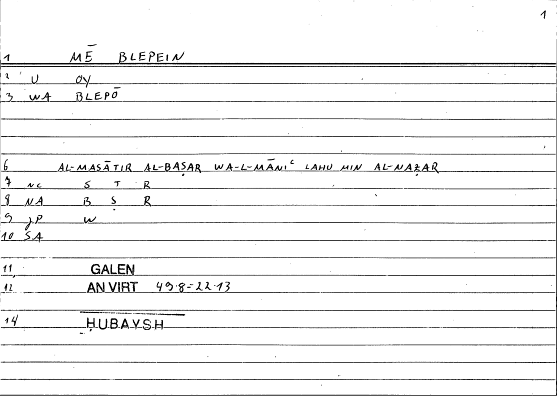 1
1 MĒ BLEPEIN
2 U OY
3 WA BLEPŌ
6 AL-MASĀTIR AL-BAṢAR WA-L-MĀNIᶜ LAHU MIN AL-NAẒAR
7 NC S T R
8 NA B Ṣ R
9 JP W
10 SA
11 GALEN
12 AN VIRT 49.8=22.13
14 ḤUBAYSH